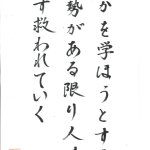 かを学ほうとす
勢がある限り人
す救われていく